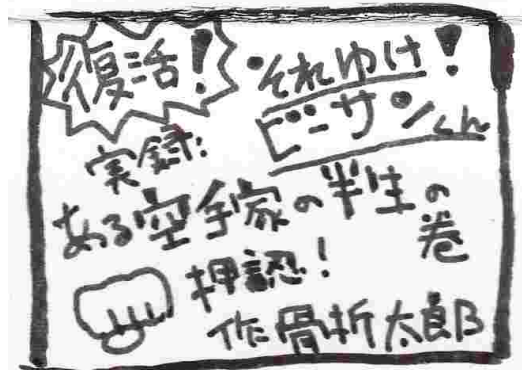 復活!
・それゆけ!
ビーサンくん
実録:
ある空手家の半生の巻
押認!
作 骨折太郎